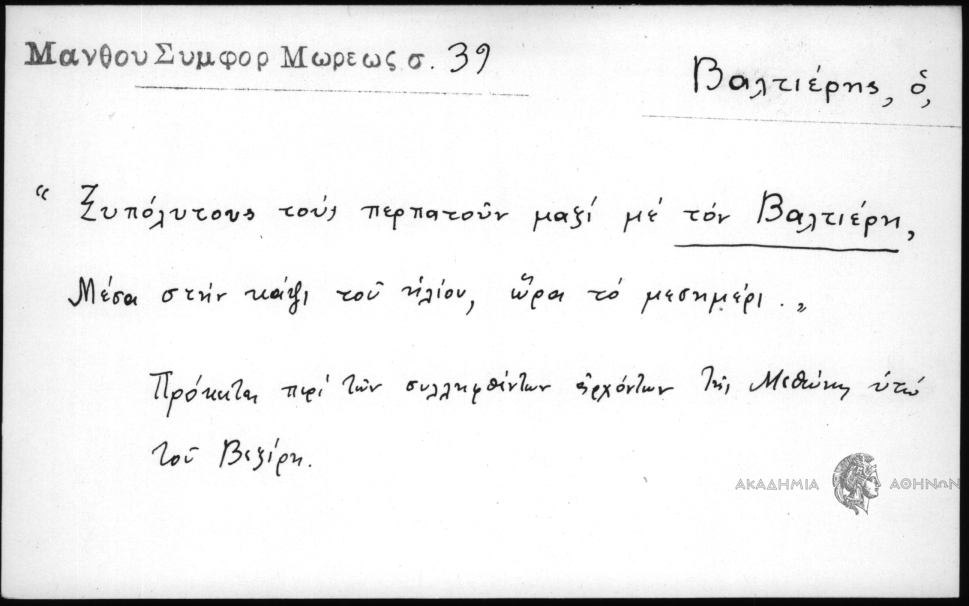 Μανθου Συμφορ Μωρεως σ. 39
Βαλτιέρης, ὁ,
“ Ξυπόλυτους τούς περπατοῦν μαζί μέ τόν Βαλτιέρη,
Μέσα στήν κάψι τοῦ ἡλίου, ὥρα τό μεσημέρι. „
Πρόκειται περί τῶν συλληφθέντων ἀρχόντων τῆς Μεθώνης ὑπό
τοῦ Βεζίρη.
ΑΚΑΔΗΜΙΑ ΑΘΗΝΩΝ